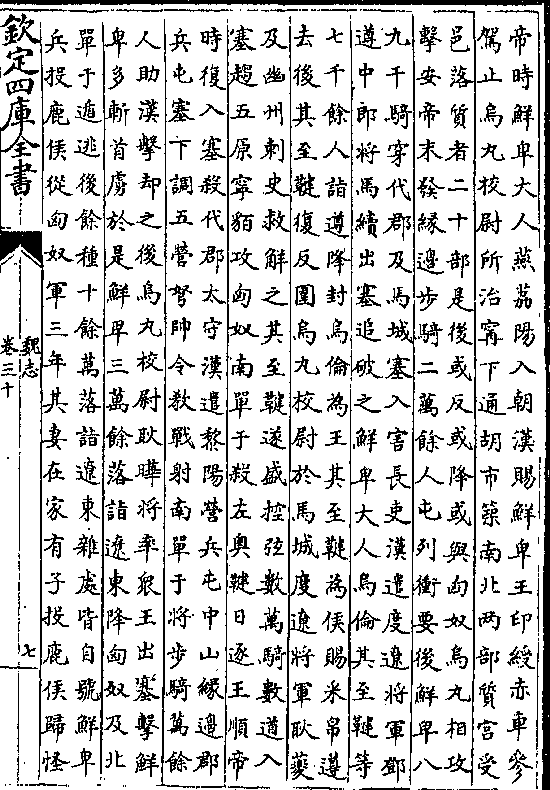 帝時鮮卑大人燕荔陽入朝漢賜鮮卑王印綬赤車參
駕止烏丸校尉所治甯下通胡市築南北两部質宫受
邑落質者二十部是後或反或降或與匈奴烏丸相攻
擊安帝末發緣邊步騎二萬餘人屯列衝要後鮮卑八
九千騎穿代郡及馬城塞入害長吏漢遣度遼將軍鄧
遵中郎將馬續出塞追破之鮮卑大人烏倫其至鞬等
七千餘人詣遵降封烏倫為王其至鞬為侯賜采帛遵
去後其至鞬復反圍烏丸校尉於馬城度遼將軍耿夔
及幽州刺史救解之其至鞬遂盛控弦數萬騎數道入
塞趨五原寧貊攻匈奴南單于殺左奥鞬日逐王順帝
時復入塞殺代郡太守漢遣黎陽營兵屯中山緣邊郡
兵屯塞下調五營弩帥令教戰射南單于將步騎萬餘
人助漢擊却之後烏丸校尉耿曄將率衆王出塞擊鮮
卑多斬首虜於是鮮卑三萬餘落詣遼東降匈奴及北
單于遁逃後餘種十餘萬落詣遼東雜處皆自號鮮卑
兵投鹿侯從匈奴軍三年其妻在家有子投鹿侯歸怪
欽定四庫全書
魏志
卷三十
七